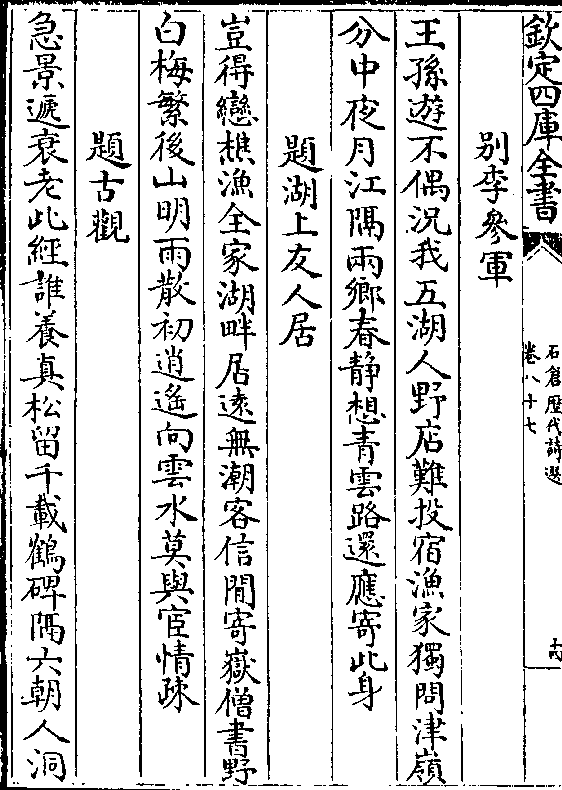 欽定四庫全書
石倉歷代詩選
卷八十七
别李參軍
王孫遊不偶況我五湖人野店難投宿漁家獨問津嶺
分中夜月江隔兩鄉春静想青雲路還應寄此身
題湖上友人居
豈得戀樵漁全家湖畔居遠無潮客信閒寄嶽僧書野
白梅繁後山明雨散初逍遙向雲水莫與宦情疎
題古觀
急景遞衰老此經誰養真松留千載鶴碑隔六朝人洞